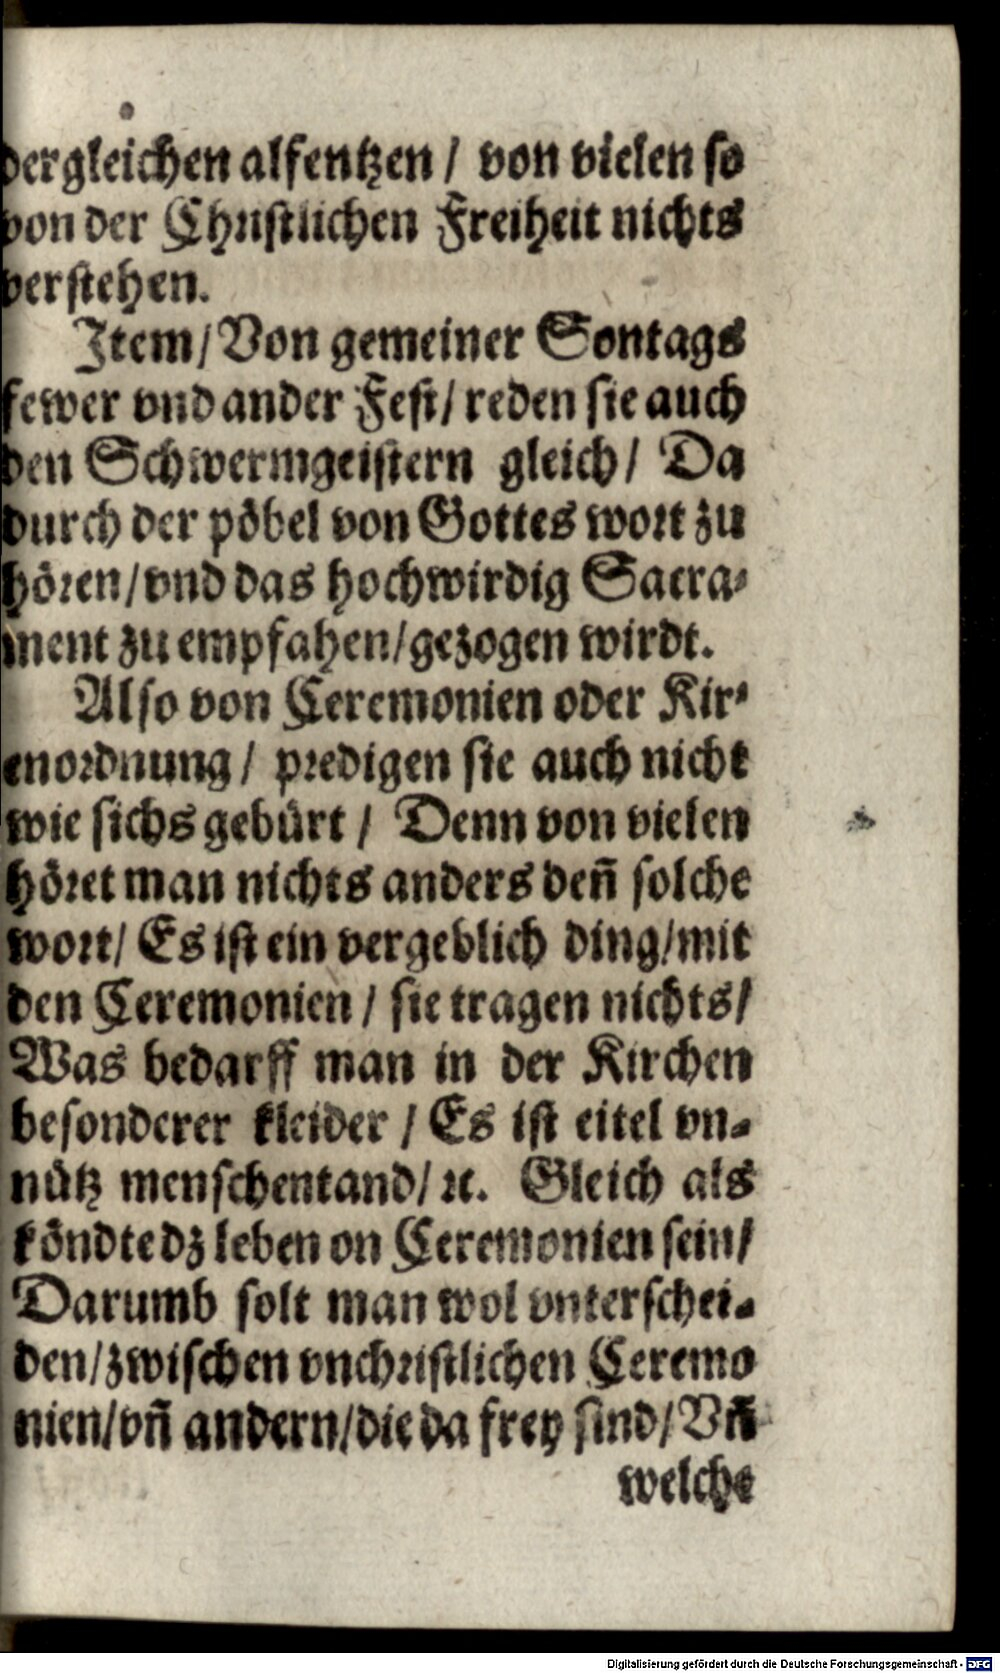 dergleichen alfentzen / von vielen so
von der Christlichen Freiheit nichts
verstehen.
Item / Von gemeiner Sontags
fewer vnd ander Fest / reden sie auch
den Schwermgeistern gleich / Da
durch der pöbel von Gottes wort zu
hören / vnd das hochwirdig Sacra⸗
ment zu empfahen / gezogen wirdt.
Also von Ceremonien oder Kir⸗
enordnung / predigen sie auch nicht
wie sichs gebürt / Denn von vielen
höret man nichts anders deñ solche
wort / Es ist ein vergeblich ding / mit
den Ceremonien / sie tragen nichts /
Was bedarff man in der Kirchen
besonderer kleider / Es ist eitel vn⸗
nütz menschentand / ꝛc. Gleich als
köndte dz leben on Ceremonien sein /
Darumb solt man wol vnterschei⸗
den / zwischen vnchristlichen Ceremo
nien / vñ andern / die da frey sind / Vñ
welche
Digitalisierung gefördert durch die Deutsche Forschungsgemeinschaft - DFG